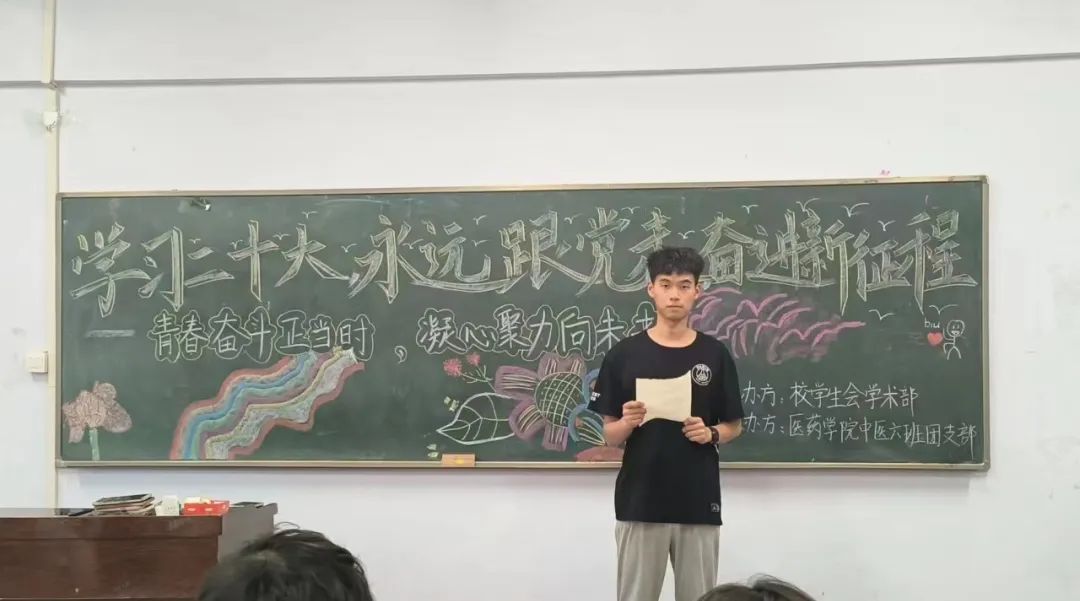 学习二十大,永远跟党走奋进新征程
青春奋斗正当时,凝心聚力向未来
biu
办方:校学生会学术部
办方:医药学院中医六班团支部